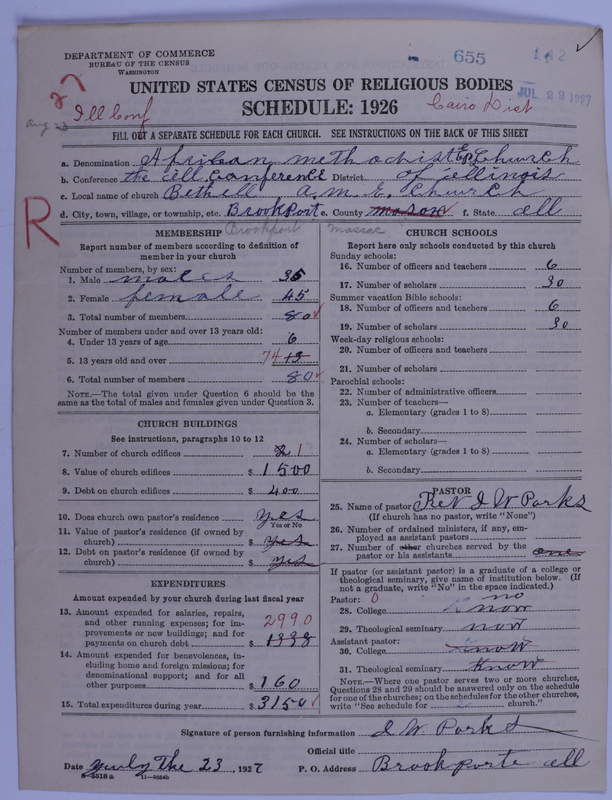 DEPARTMENT OF COMMERCE
BUREAU OF THE CENSUS
WASHINGTON
655
142
27
UNITED STATES CENSUS OF RELIGIOUS BODIES
JUL 29 1927
Aug 23
Ill Conf
SCHEDULE: 1926
Cairo Dist
FILL OUT A SEPARATE SCHEDULE FOR EACH CHURCH. SEE INSTRUCTIONS ON THE BACK OF THIS SHEET
a. Denomination African methodist Ep Church
b. Conference the Ill Conference District of Illinois
c. Local name of church Bethell A. M. E. Church
d. City, town, village, or township, etc. Brookport e. County mason f. State Ill
R
Brookport Massac
MEMBERSHIP
Report number of members according to definition of member in your church
Number of members, by sex:
1. Male males 35
2. Female female 45
3. Total number of members 80
Number of members under and over 13 years old:
4. Under 13 years of age 6
5. 13 years old and over 74
6. Total number of members 80
NOTE.—The total given under Question 6 should be the same as the total of males and females given under Question 3.
CHURCH BUILDINGS
See instructions, paragraphs 10 to 12
7. Number of church edifices 1
8. Value of church edifices $ 1500
9. Debt on church edifices $ 400
10. Does church own pastor's residence yes
Yes or No
11. Value of pastor's residence (if owned by church) $ yes
12. Debt on pastor's residence (if owned by church) $ yes
EXPENDITURES
Amount expended by your church during last fiscal year
13. Amount expended for salaries, repairs, and other running expenses; for improvements or new buildings; and for payments on church debt 2990 $ 1338
14. Amount expended for benevolences, including home and foreign missions; for denominational support; and for all other purposes $ 160
15. Total expenditures during year $ 3150
CHURCH SCHOOLS
Report here only schools conducted by this church
Sunday schools:
16. Number of officers and teachers 6
17. Number of scholars 30
Summer vacation Bible schools:
18. Number of officers and teachers 6
19. Number of scholars 30
Week-day religious schools:
20. Number of officers and teachers
21. Number of scholars
Parochial schools:
22. Number of administrative officers
23. Number of teachers—
a. Elementary (grades 1 to 8)
b. Secondary
24. Number of scholars—
a. Elementary (grades 1 to 8)
b. Secondary
PASTOR
25. Name of pastor Rev J W Parks
(If church has no pastor, write "None")
26. Number of ordained ministers, if any, employed as assistant pastors
27. Number of other churches served by the pastor or his assistants one
If pastor (or assistant pastor) is a graduate of a college or theological seminary, give name of institution below. (If not a graduate, write "No" in the space indicated.)
Pastor: 0 no
28. College now
29. Theological seminary now
Assistant pastor:
30. College know
31. Theological seminary know
NOTE.—Where one pastor serves two or more churches, Questions 28 and 29 should be answered only on the schedule for one of the churches; on the schedules for the other churches, write "See schedule for church."
Signature of person furnishing information J. W. Parks
Official title
Date yuly The 23, 1927 P. O. Address Brookporte Ill
8-5518a 11-9024b